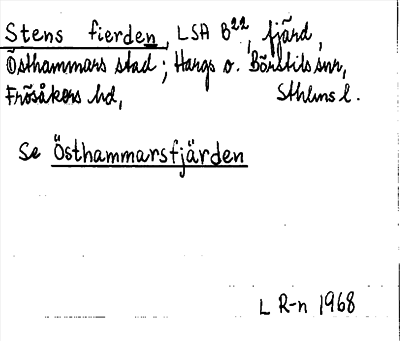 Stens fierden, LSA B22, fjärd,
Östhammars stad; Hargs o. Börstils snr,
Frösåkers hd, Sthlms l.
Se Östhammarsfjärden
L R-n 1968